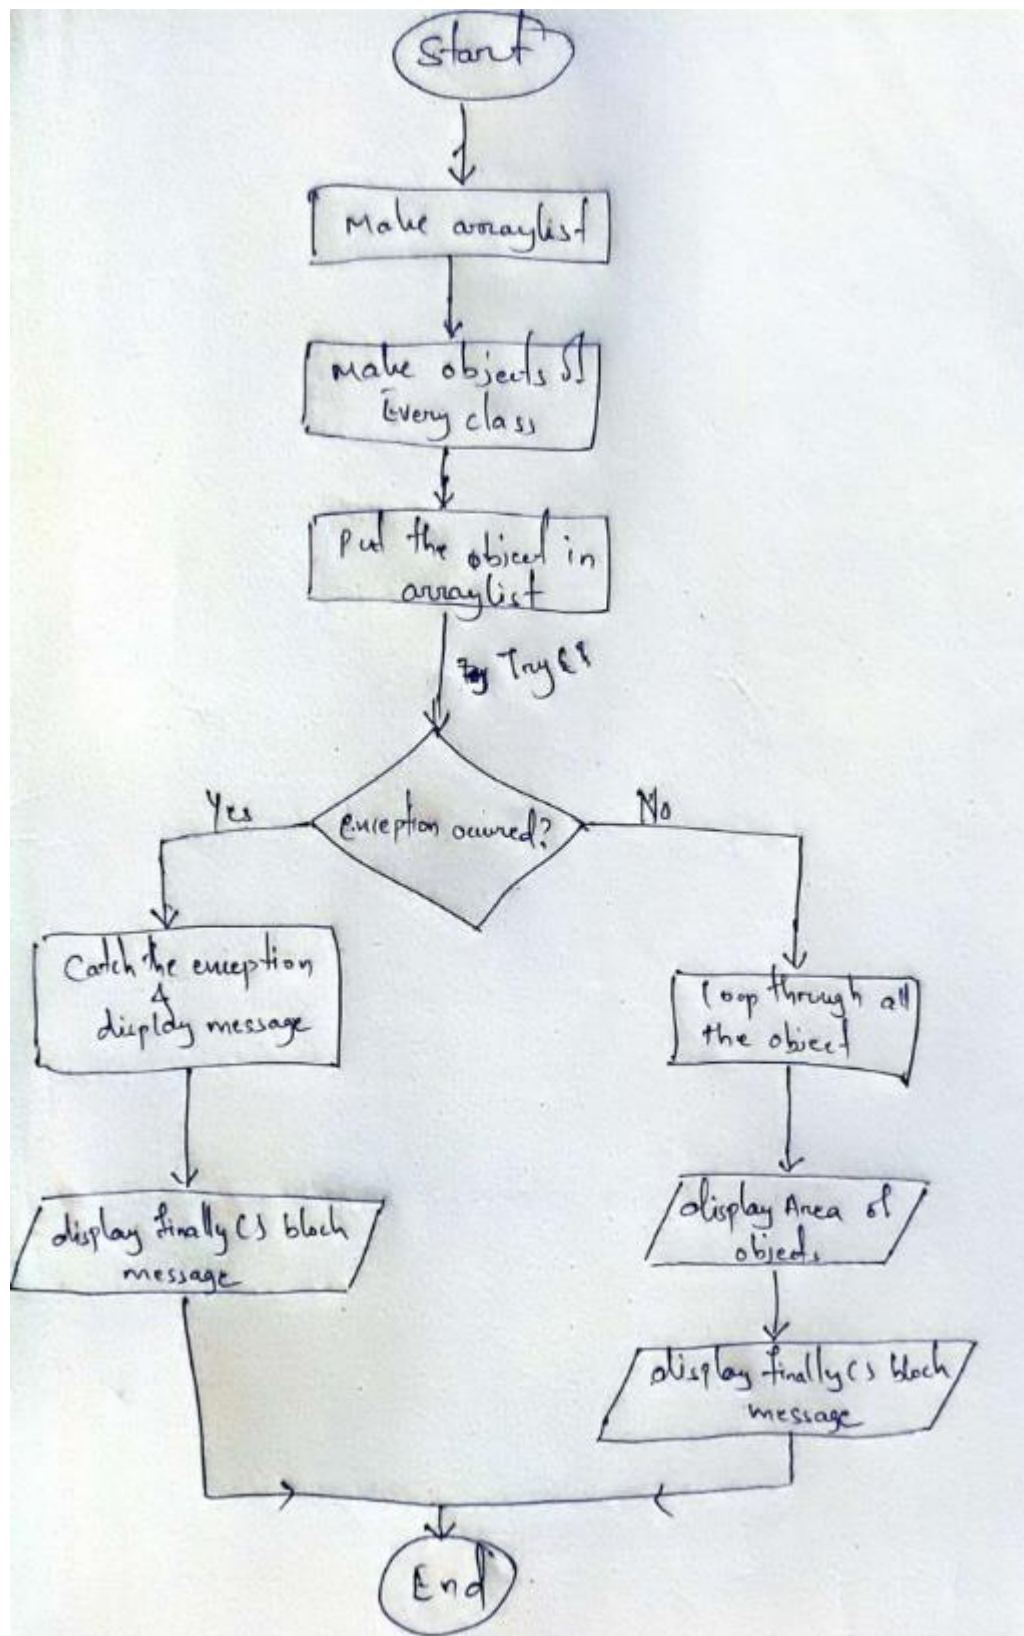 Start
Make arraylist
Make objects of
Every class
Put the object in
arraylist
Try {}
Yes
exception occured?
No
Catch the exception
&
display message
loop through all
the object
display finally() block
message
display Area of
objects
display finally() block
message
End